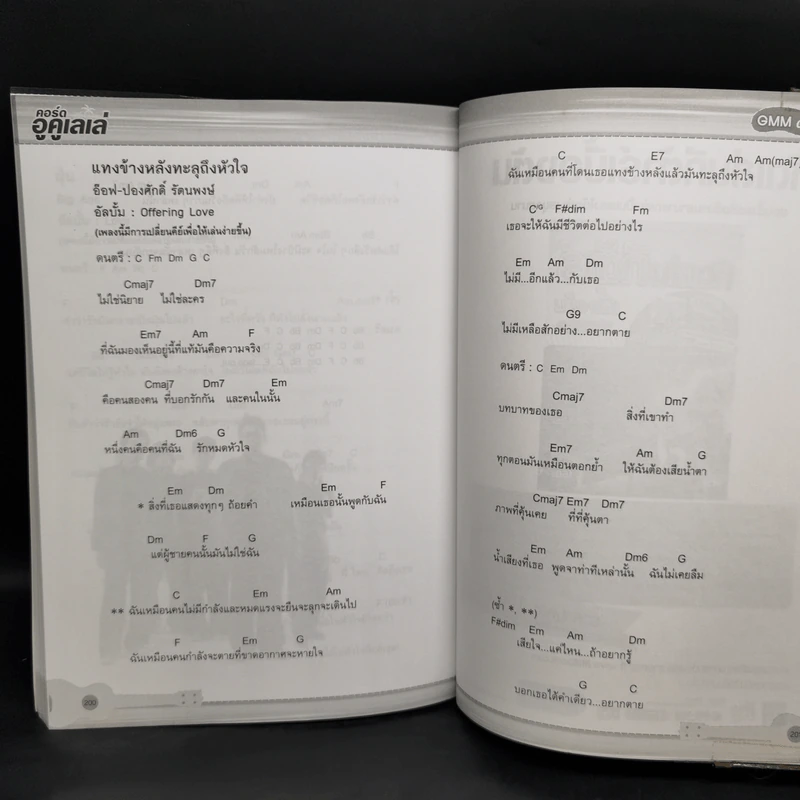 คอร์ด
อูคูเลเล่
แทงข้างหลังทะลุถึงหัวใจ
อ๊อฟ-ปองศักดิ์ รัตนพงษ์
อัลบั้ม : Offering Love
(เพลงนี้มีการเปลี่ยนคีย์เพื่อให้เล่นง่ายขึ้น)
ดนตรี : C Fm Dm G C
Cmaj7 Dm7
ไม่ใช่นิยาย ไม่ใช่ละคร
Em7 Am F
ที่ฉันมองเห็นอยู่นี้ที่แท้มันคือความจริง
Cmaj7 Dm7 Em
คือคนสองคน ที่บอกรักกัน และคนในนั้น
Am Dm6 G
หนึ่งคนคือคนที่ฉัน รักหมดหัวใจ
Em Dm Em F
* สิ่งที่เธอแสดงทุกๆ ถ้อยคำ เหมือนเธอนั้นพูดกับฉัน
Dm F G
แต่ผู้ชายคนนั้นมันไม่ใช่ฉัน
C Em Am
** ฉันเหมือนคนไม่มีกำลังและหมดแรงจะยืนจะลุกจะเดินไป
F Em G
ฉันเหมือนคนกำลังจะตายที่ขาดอากาศจะหายใจ
200
GMM
C E7 Am Am(maj7)
ฉันเหมือนคนที่โดนเธอแทงข้างหลังแล้วมันทะลุถึงหัวใจ
F#dim Fm
เธอจะให้ฉันมีชีวิตต่อไปอย่างไร
Em Am Dm
ไม่มี...อีกแล้ว...กับเธอ
G9 C
ไม่มีเหลือสักอย่าง...อยากตาย
ดนตรี : C Em Dm
Cmaj7 Dm7
บทบาทของเธอ สิ่งที่เขาทำ
Em7 Am G
ทุกตอนมันเหมือนตอกย้ำ ให้ฉันต้องเสียน้ำตา
Cmaj7 Em7 Dm7
ภาพที่คุ้นเคย ที่ที่คุ้นตา
Em Am Dm6 G
น้ำเสียงที่เธอ พูดจาท่าทีเหล่านั้น ฉันไม่เคยลืม
(ซ้ำ *, **)
F#dim Em Am Dm
เสียใจ...แค่ไหน...ถ้าอยากรู้
G C
บอกเธอได้คำเดียว...อยากตาย